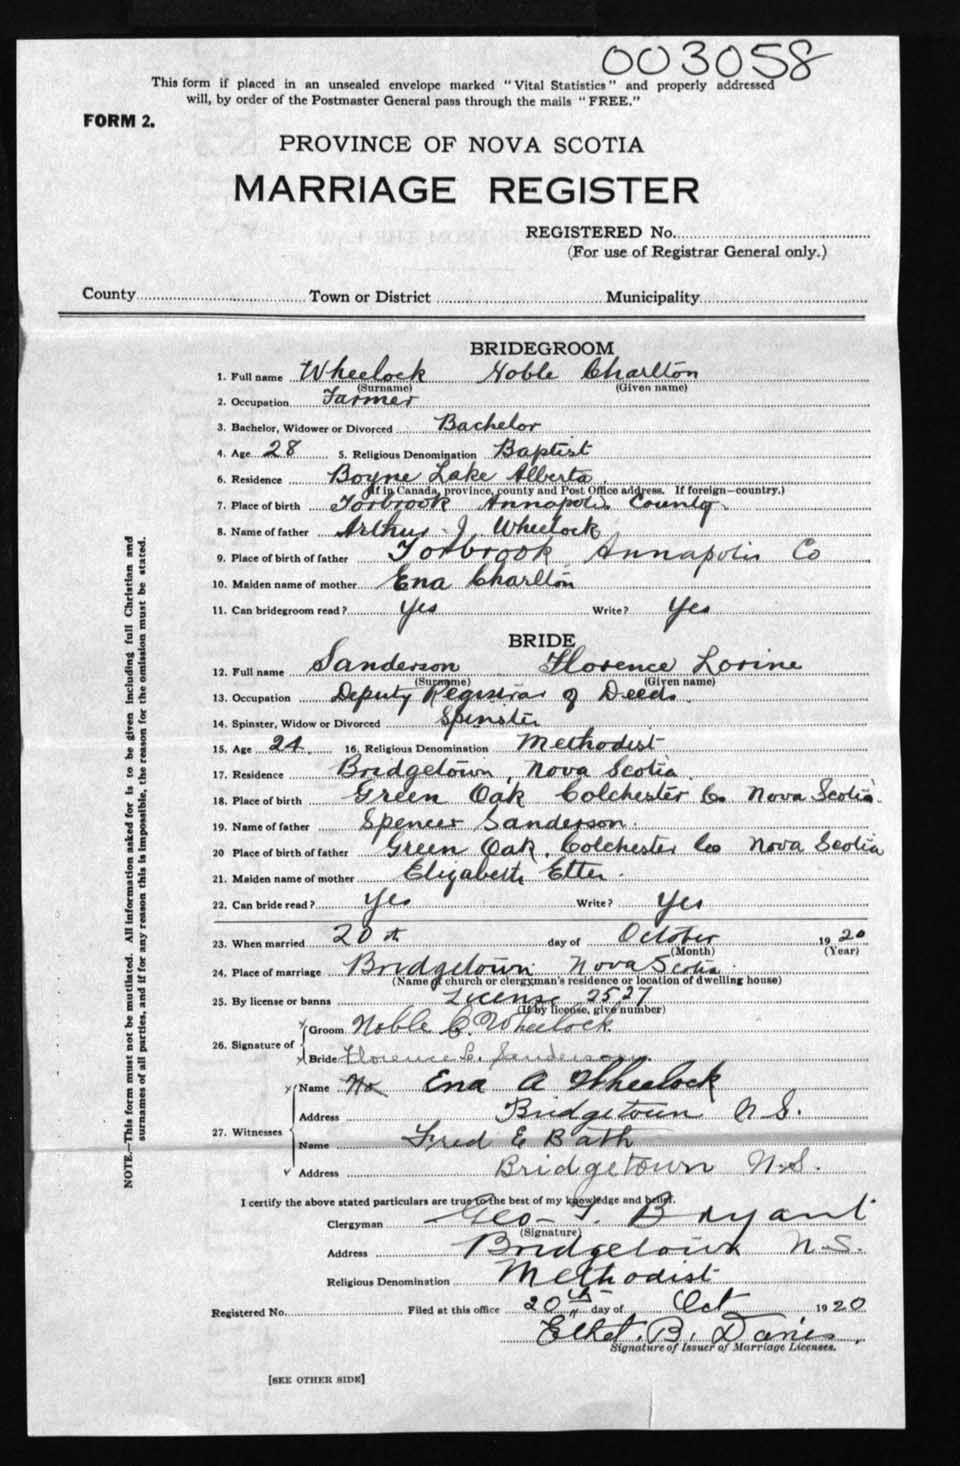 003058
This form if placed in an unsealed envelope marked "Vital Statistics" and properly addressed
will, by order of the Postmaster General pass through the mails "FREE."
FORM 2.
PROVINCE OF NOVA SCOTIA
MARRIAGE REGISTER
REGISTERED No.
(For use of Registrar General only.)
County Town or District Municipality
BRIDEGROOM
1. Full name Wheelock Noble Charlton
(Surname) (Given name)
2. Occupation Farmer
3. Bachelor, Widower or Divorced Bachelor
4. Age 28 5. Religious Denomination Baptist
6. Residence Boyne Lake Alberta
(If in Canada, province, county and Post Office address. If foreign—country.)
7. Place of birth Torbrook Annapolis County
8. Name of father Arthur J. Wheelock
9. Place of birth of father Torbrook Annapolis Co
10. Maiden name of mother Ena Charlton
11. Can bridegroom read? Yes Write? Yes
BRIDE
12. Full name Sanderson Florence Lorine
(Surname) (Given name)
13. Occupation Deputy Registrar of Deeds
14. Spinster, Widow or Divorced Spinster
15. Age 24. 16. Religious Denomination Methodist
17. Residence Bridgetown, Nova Scotia
18. Place of birth Green Oak Colchester Co Nova Scotia
19. Name of father Spencer Sanderson.
20 Place of birth of father Green Oak, Colchester Co Nova Scotia
21. Maiden name of mother Elizabeth Etter.
22. Can bride read? Yes Write? Yes
23. When married 20th day of October 1920
(Month) (Year)
24. Place of marriage Bridgetown Nova Scotia
(Name of church or clergyman's residence or location of dwelling house)
25. By license or banns License 2527
(If by license, give number)
26. Signature of Groom Noble C. Wheelock
Bride Florence L. Sanderson.
27. Witnesses Name Ena A Wheelock
Address Bridgetown N S.
Name Fred E Bath
Address Bridgetown N.S.
NOTE.—This form must not be mutilated. All information asked for is to be given including full Christian and
surnames of all parties, and if for any reason this is impossible, the reason for the omission must be stated.
I certify the above stated particulars are true to the best of my knowledge and belief.
Clergyman Geo. Bryant
(Signature)
Address Bridgetown N.S.
Religious Denomination Methodist
Registered No. Filed at this office 20th day of Oct 1920
B. Davies
Signature of Issuer of Marriage Licenses.
[SEE OTHER SIDE]